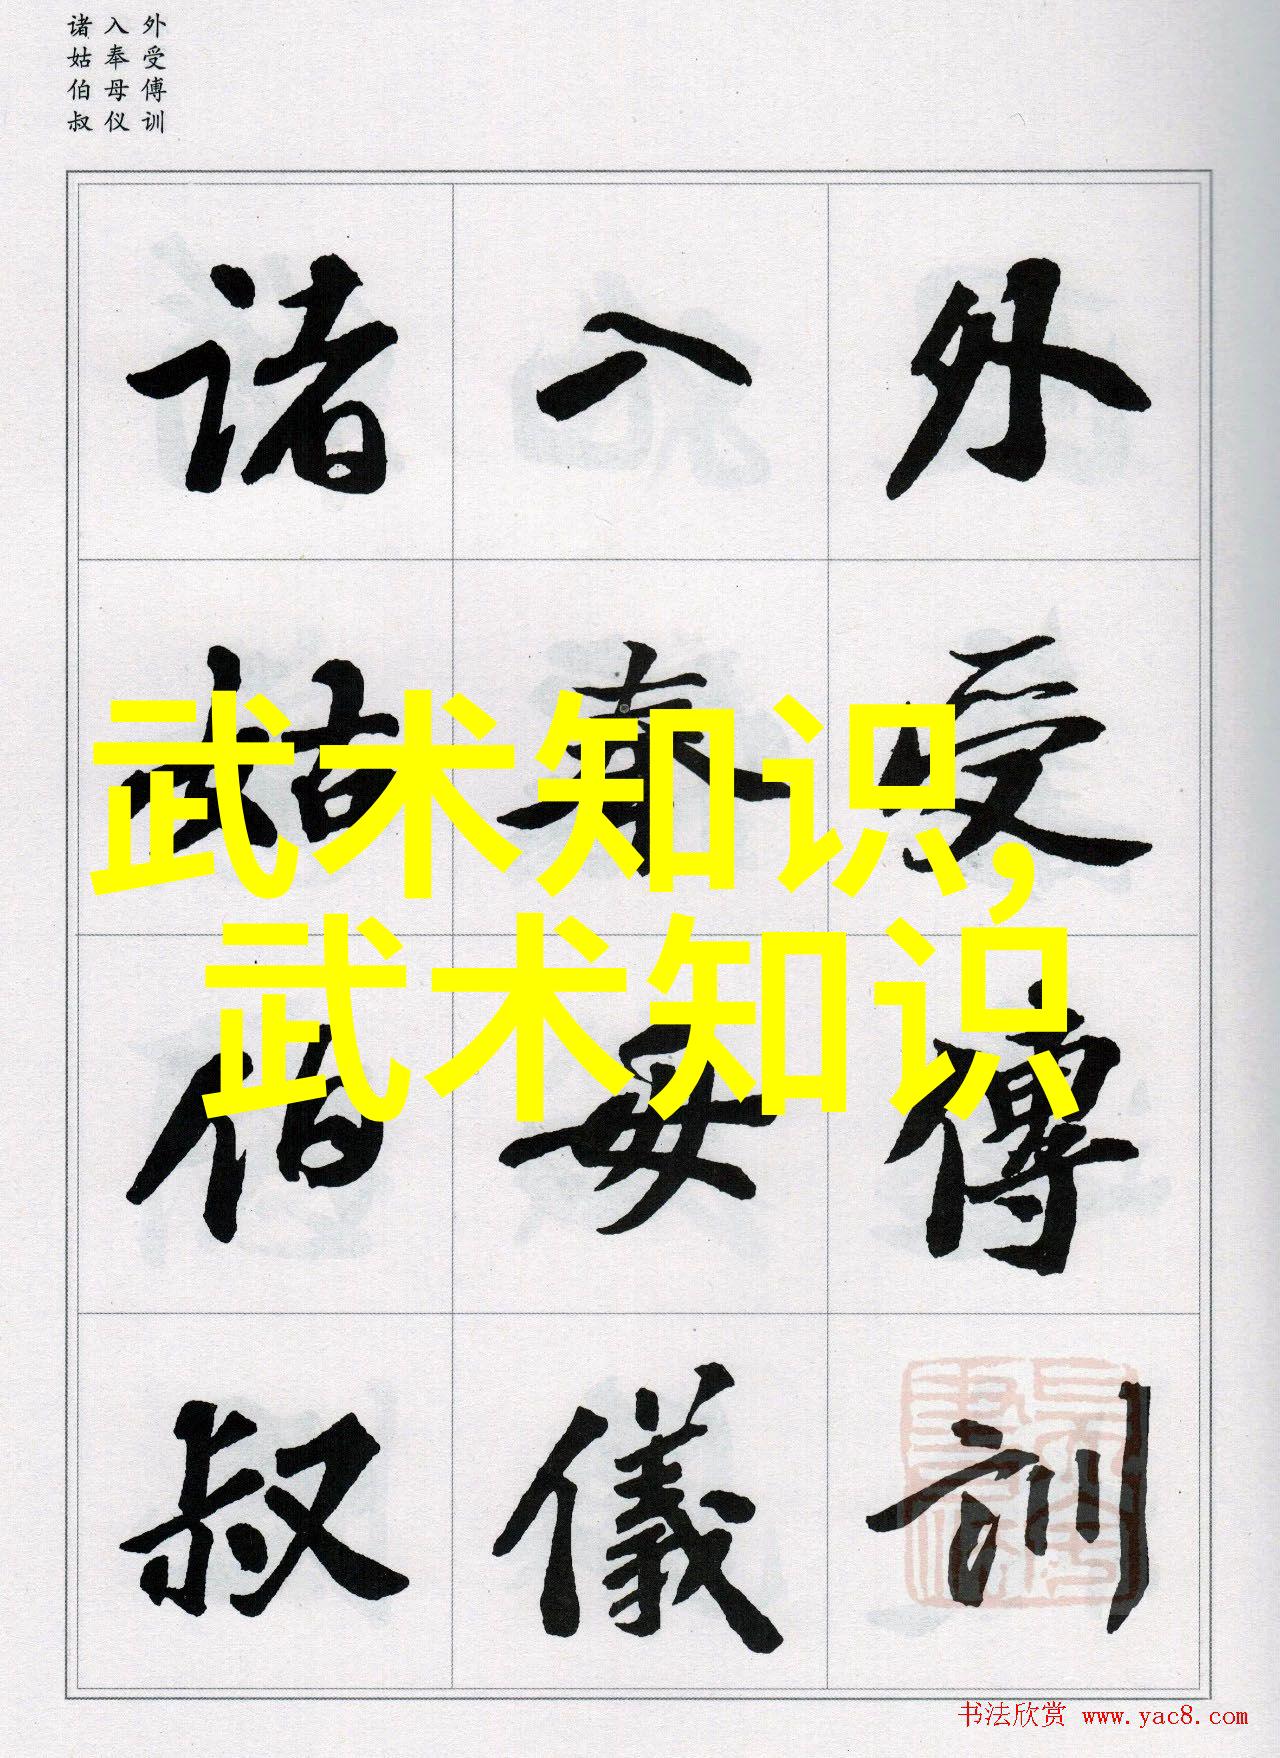 外受傅训
入奉母仪
诸姑伯叔
外受傅訓
入奉母儀
诸姑伯叔
武术知识,
武术知识
书法欣赏 www.yac8.com